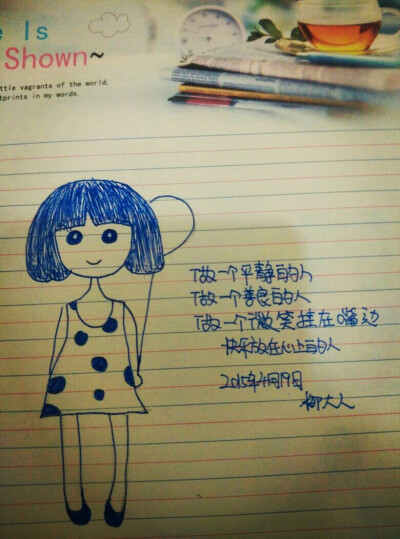 e Is
Shown~
ttle vagrants of the world.
tprints in my words.
做一个平静的人
做一个善良的人
做一个微笑挂在嘴边
快乐放在心上的人
2015年4月19日
柳大人